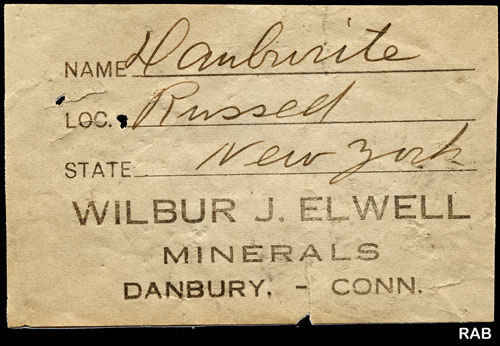 NAME Danburite
LOC. Russell
STATE New York
WILBUR J. ELWELL
MINERALS
DANBURY, - CONN.
RAB